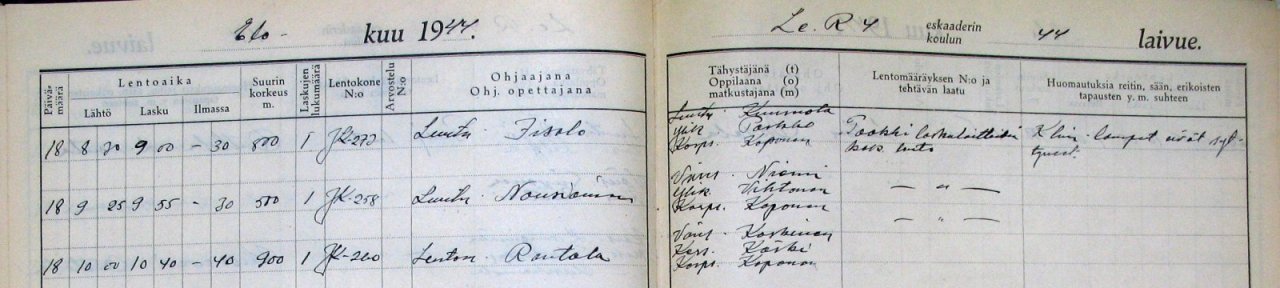 Elo- kuu 1944.
Le. R 4 eskaaderin koulun 44 laivue.
Päivämäärä Lentoaika Lähtö Lasku Ilmassa Suurin korkeus m. Laskujen lukumäärä Lentokone N:o Arvostelu N:o Ohjaajana Ohj. opettajana
Tähystäjänä (t) Oppilaana (o) matkustajana (m) Lentomääräyksen N:o ja tehtävän laatu Huomautuksia reitin, sään, erikoisten tapausten y. m. suhteen
18 8 30 9 00 - 30 800 1 Luutn. Iisalo
Luutn.
Ylik.
Korps. Koponen
lento
lamput eivät
18 9 25 9 55 - 30 500 1 JK-258 Luutn. Nousiainen
Vänr. Niemi
Ylik. Vihtonen
Korps. Koponen
— " —
18 10 00 10 40 - 40 900 1 JK-260 Rantala
Vänr. Koskinen
Kers. Käski
Korps. Koponen
— " —